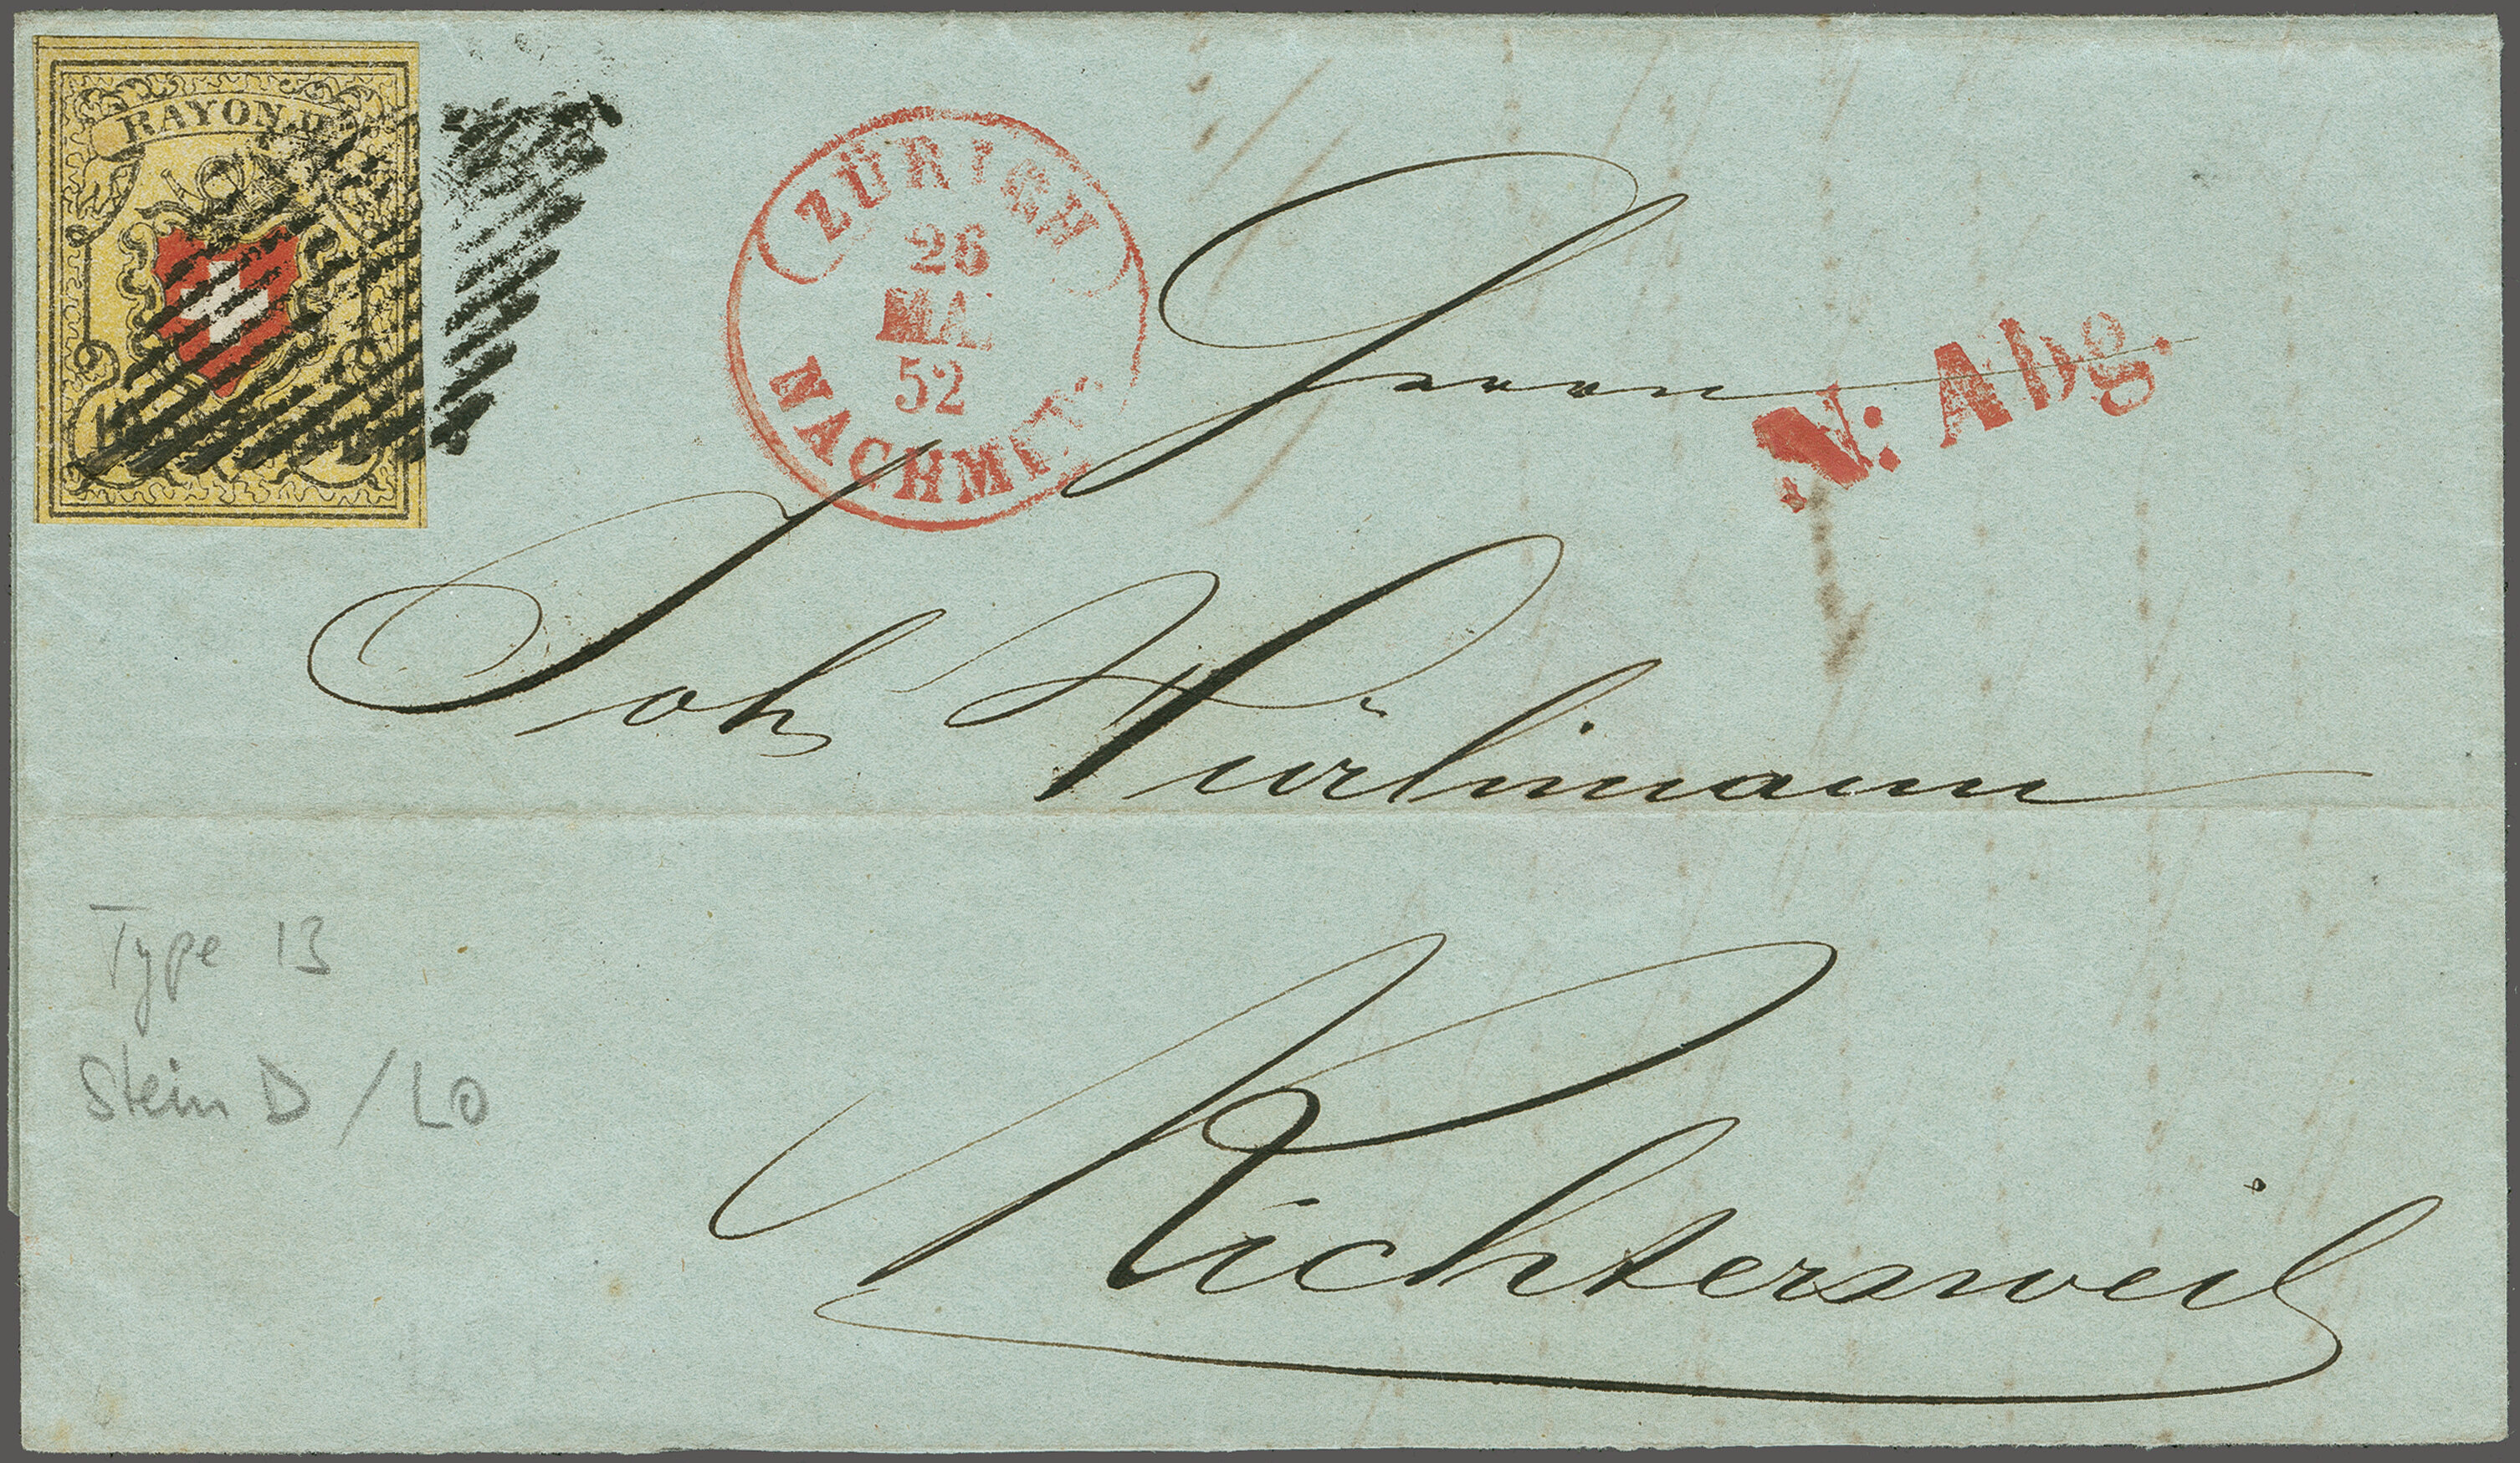 RAYON. II.
ZÜRICH
26
MAI
52
NACHMITT
N: Abg.
Herrn
Joh Hürlimann
Richtersweil
Type 13
Stein D / LO